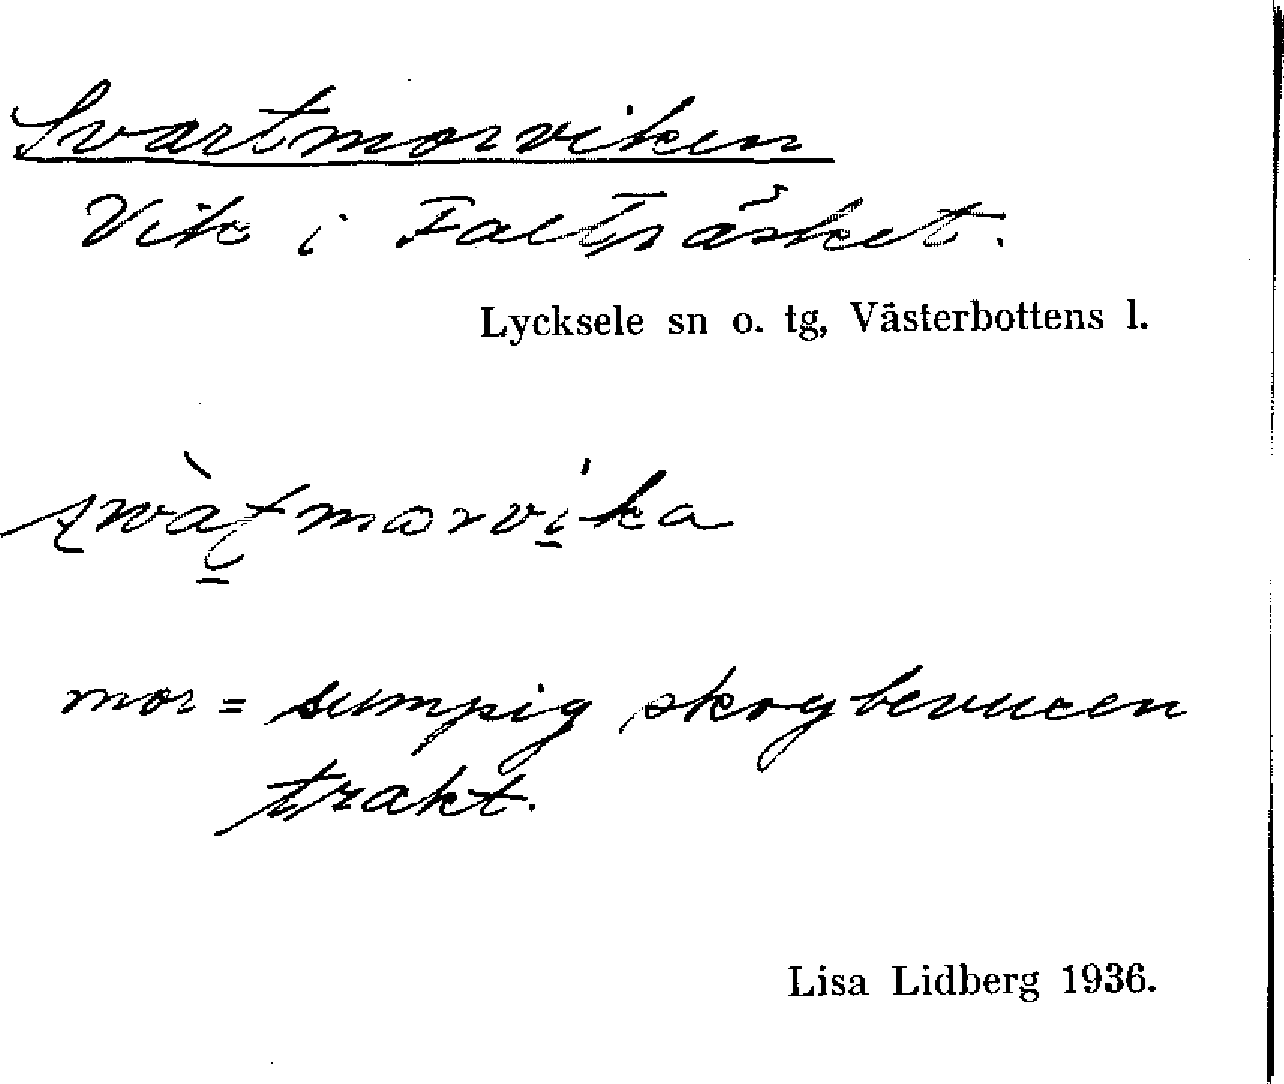 Svartmorviken
Vik i Falträsket.
Lycksele sn o. tg, Västerbottens l.
mor = sumpig skogbevuxen
trakt.
Lisa Lidberg 1936.